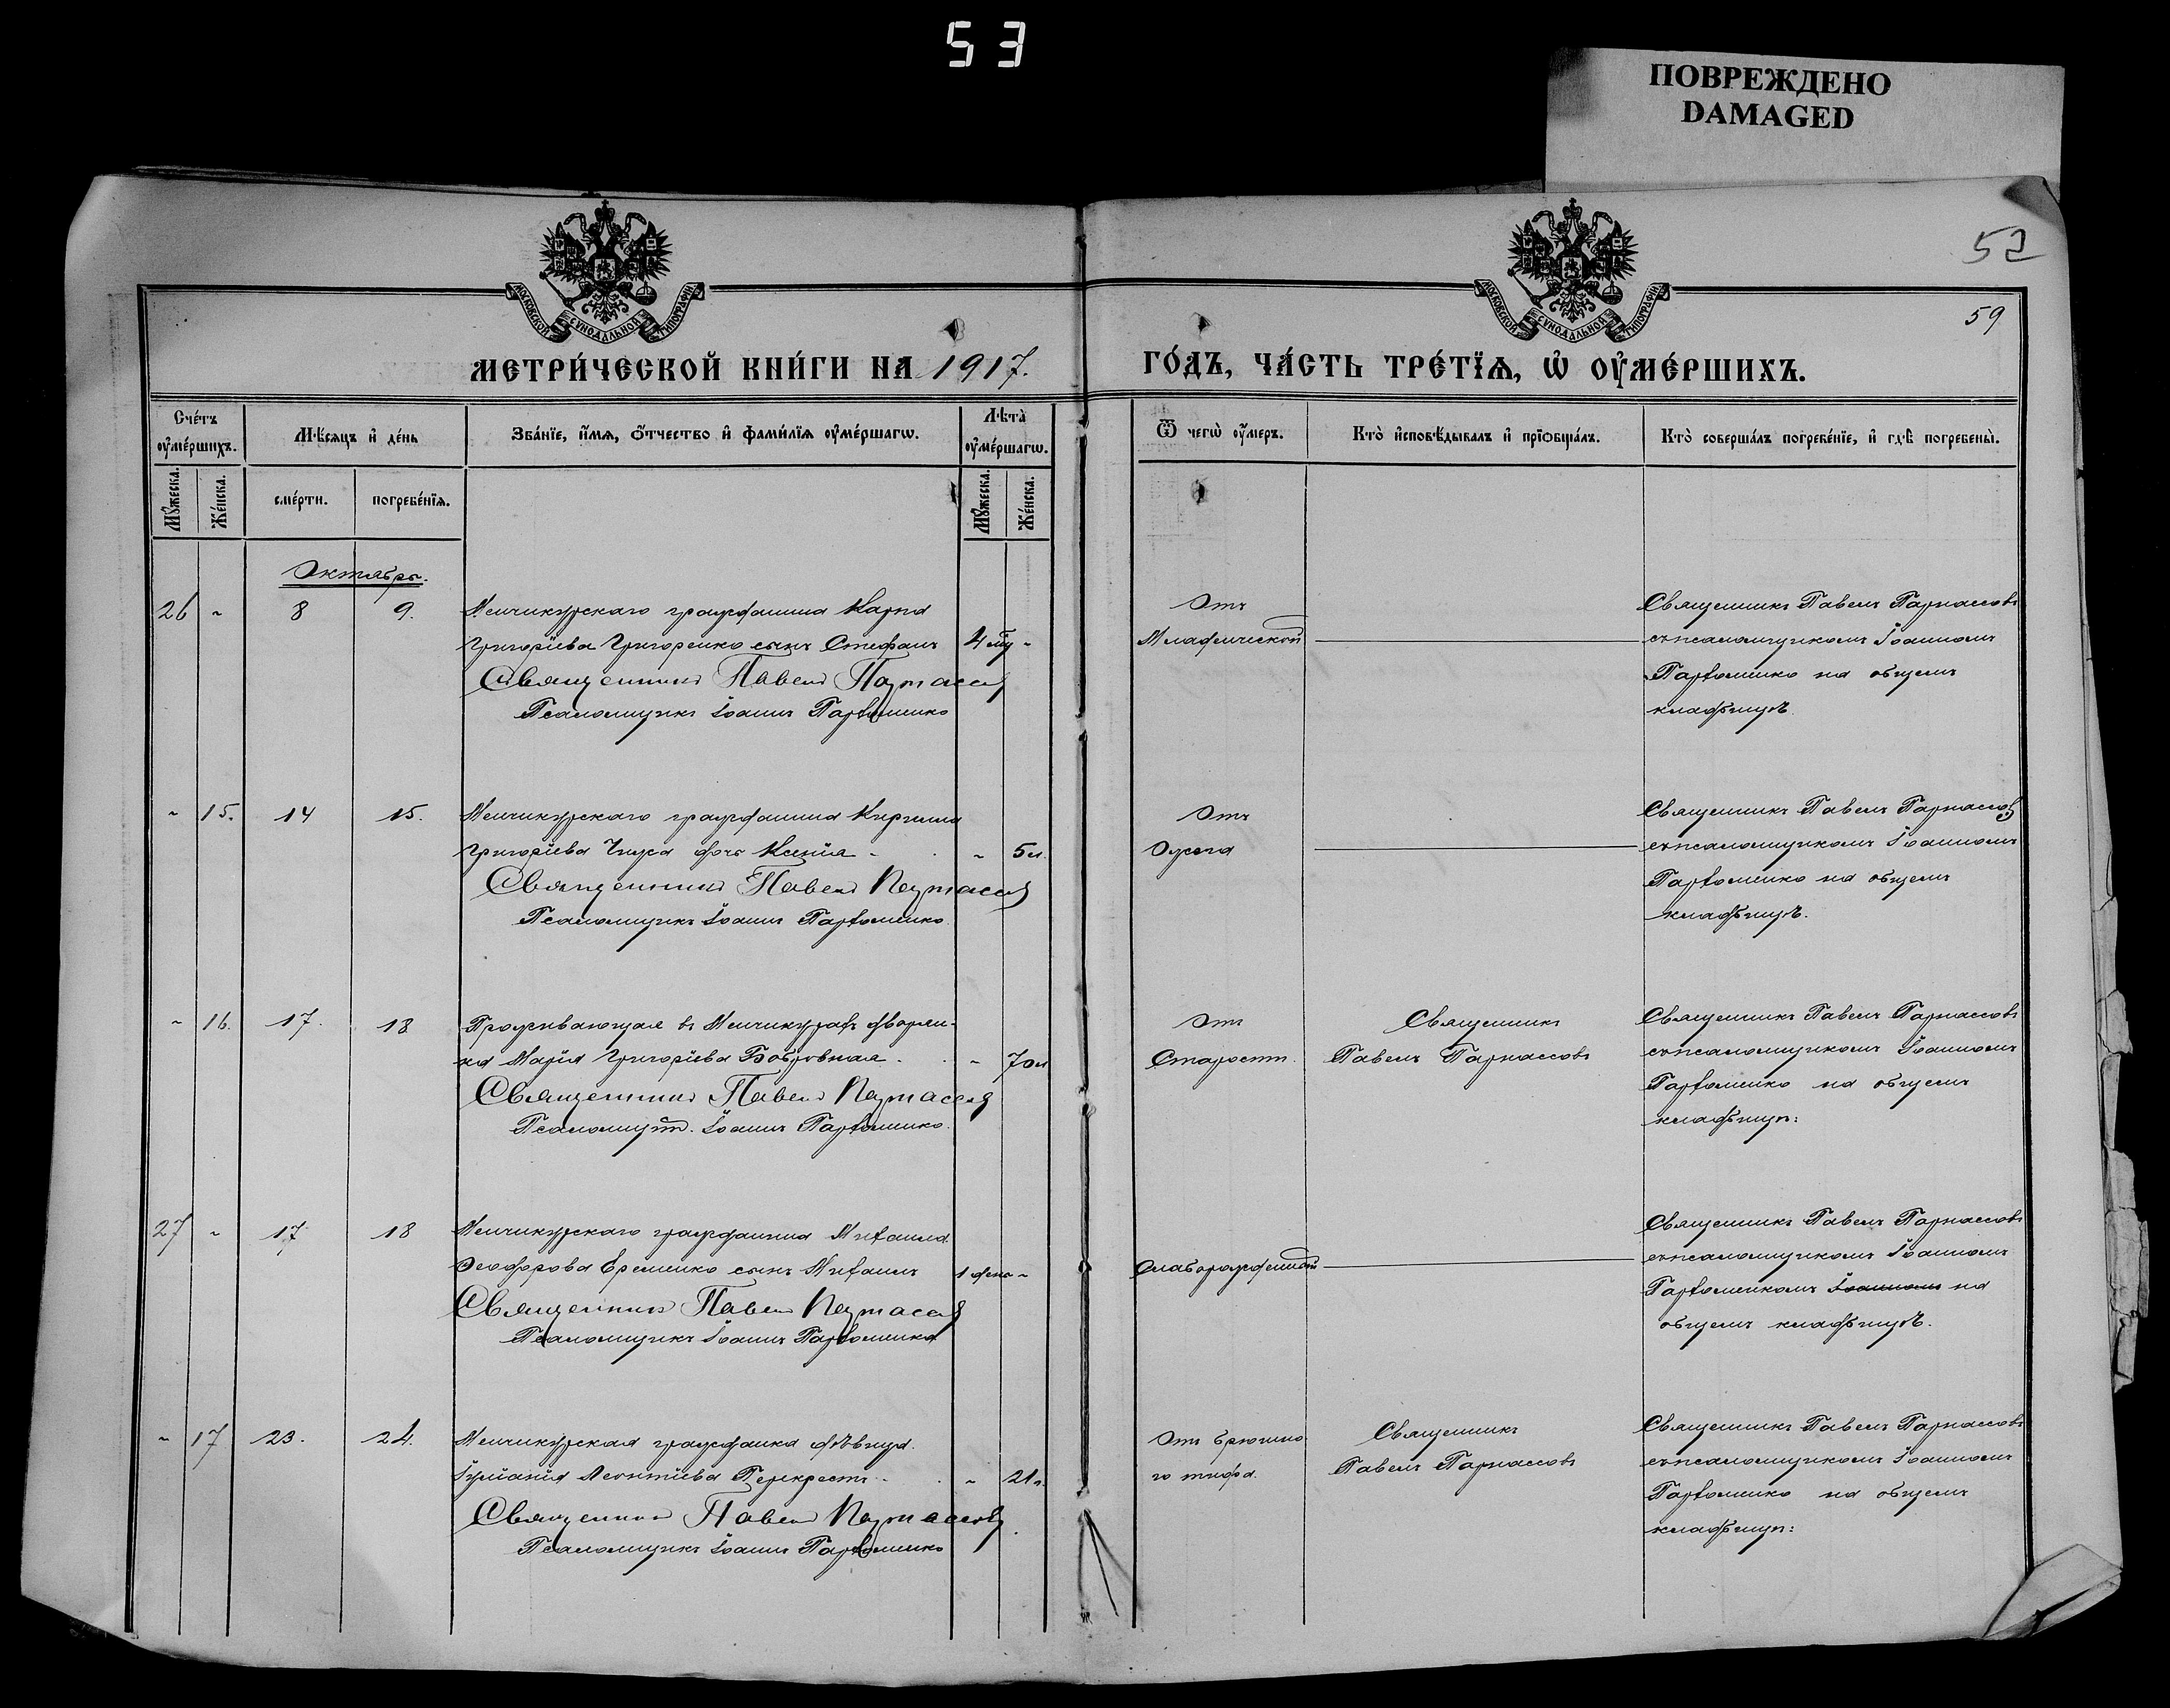 53
ПОВРЕЖДЕНО
DAMAGED
52
59
МОСКОВСКОЙ СѴНОДАЛЬНОЙ ТИПОГРАФІИ
МОСКОВСКОЙ СѴНОДАЛЬНОЙ ТИПОГРАФІИ
МЕТРИ́ЧЕСКОЙ КНИ́ГИ НА 1917.
ГО́ДЪ, ЧА́СТЬ ТРЕ́ТЇѦ, Ѡ҆ ОУ҆МЕ́РШИХЪ.
Сче́тъ оу҆ме́ршихъ.
Мꙋ́жеска.
Же́нска.
Мѣ́сѧцъ и҆ де́нь
сме́рти.
погребе́нїѧ.
Зва́нїе, и҆́мѧ, ѻ҆́тчество и҆ фами́лїѧ оу҆ме́ршагѡ.
Лѣ́та оу҆ме́ршагѡ.
Мꙋ́жеска.
Же́нска.
Ѿ чегѡ̀ оу҆́меръ.
Кто̀ и҆сповѣ́дывалъ и҆ прїѡбща́лъ.
Кто̀ соверша́лъ погребе́нїе, и҆ гдѣ̀ погребены̀.
Октябрь.
26 " 8 9.
Менчикурскаго гражданина Карпа
Григоріева Григоренко сынъ Стефанъ 4 "
Священникъ Павелъ Парнассовъ
Псаломщикъ Іоаннъ Пархоменко
Отъ
Младенческой
Священникъ Павелъ Парнассовъ
съ псаломщикомъ Іоанномъ
Пархоменко на общемъ
кладбищѣ.
" 15. 14 15.
Менчикурскаго гражданина Кирилла
Григоріева дочь Ксенія " 5 л.
Священникъ Павелъ Парнассовъ
Псаломщикъ Іоаннъ Пархоменко.
Отъ
Ожога
Священникъ Павелъ Парнассовъ
съ псаломщикомъ Іоанномъ
Пархоменко на общемъ
кладбищѣ.
" 16. 17. 18
Проживающая въ Менчикурахъ дворян-
ка Марія Григоріева Бобровная " 70 л
Священникъ Павелъ Парнассовъ
Псаломщ. Іоаннъ Пархоменко.
Отъ
Старости.
Священникъ
Павелъ Парнассовъ
Священникъ Павелъ Парнассовъ
съ псаломщикомъ Іоанномъ
Пархоменко на общемъ
кладбищѣ:
27 " 17 18
Менчикурскаго гражданина Михаила
Ѳеодорова Еременко сынъ Михаилъ 1 день "
Священникъ Павелъ Парнассовъ
Псаломщикъ Іоаннъ Пархоменко
Слаборожденный
Священникъ Павелъ Парнассовъ
съ псаломщикомъ Іоанномъ
Пархоменкомъ Іоанномъ на
общемъ кладбищѣ.
" 17 23. 24.
Менчикурская гражданка дѣвица
Іуліанія Леонтіева Перекрестъ " 21 л.
Священникъ Павелъ Парнассовъ
Псаломщикъ Іоаннъ Пархоменко
Отъ брюшно
го тифа.
Священникъ
Павелъ Парнассовъ
Священникъ Павелъ Парнассовъ
съ псаломщикомъ Іоанномъ
Пархоменко на общемъ
кладбищѣ: